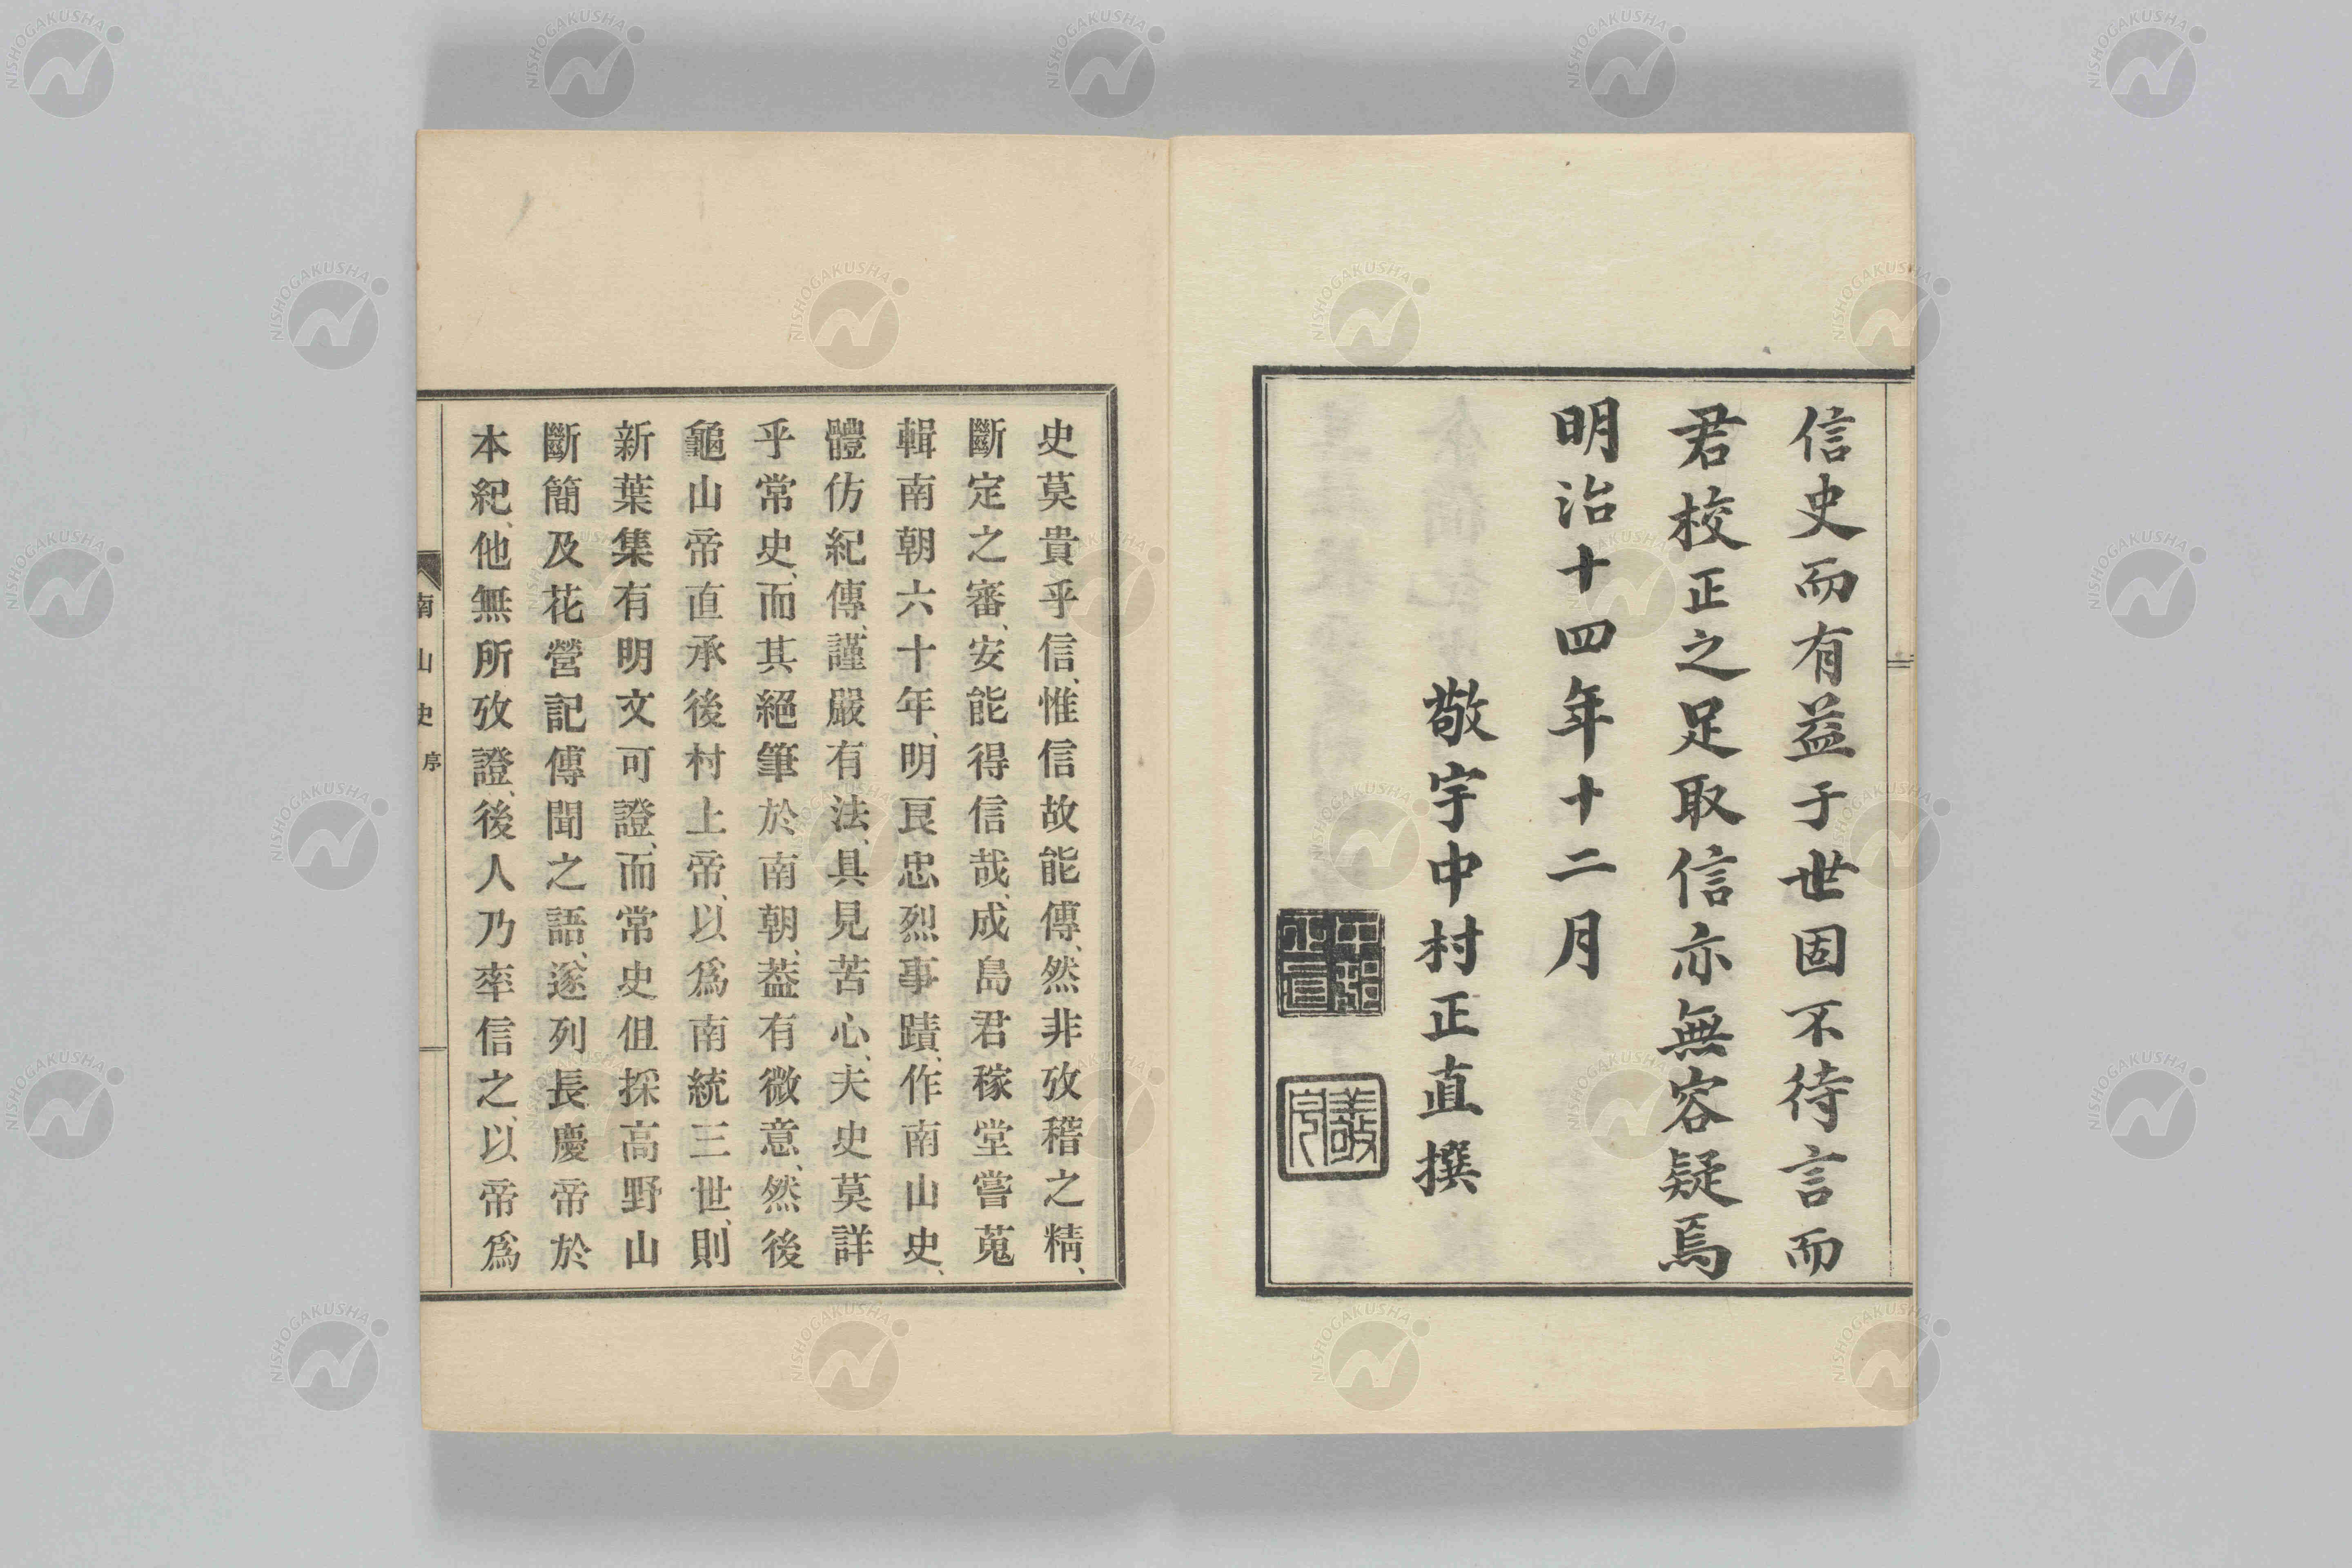 信史而有益于世固不待言而
君校正之足取信亦無容疑焉
明治十四年十二月
敬宇中村正直撰
史莫貴乎信、惟信故能傳、然非攷稽之精、
斷定之審、安能得信哉、成島君稼堂嘗蒐
輯南朝六十年、明良忠烈事蹟、作南山史、
體仿紀傳、謹嚴有法、具見苦心、夫史莫詳
乎常史、而其絕筆於南朝、蓋有微意、然後
龜山帝直承後村上帝、以爲南統三世、則
新葉集有明文可證、而常史但採高野山
斷簡及花營記傳聞之語、遂列長慶帝於
本紀、他無所攷證、後人乃率信之、以帝爲
南山史 序
NISHOGAKUSHA